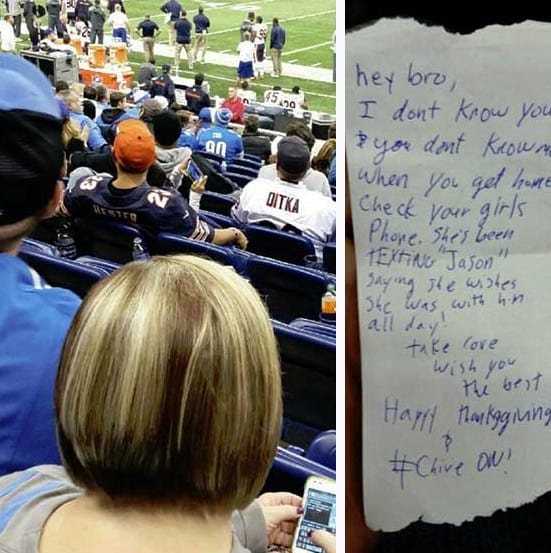 HESTER
23
DITKA
90
45
20
hey bro,
I dont know you
& you dont know me
when you get home
Check your girls
Phone, She's been
tEXtiNG "Jason"
Saying she wishes
She was with him
all day!
take care
wish you
the best
Happy thanksgiving
&
#Chive ON!